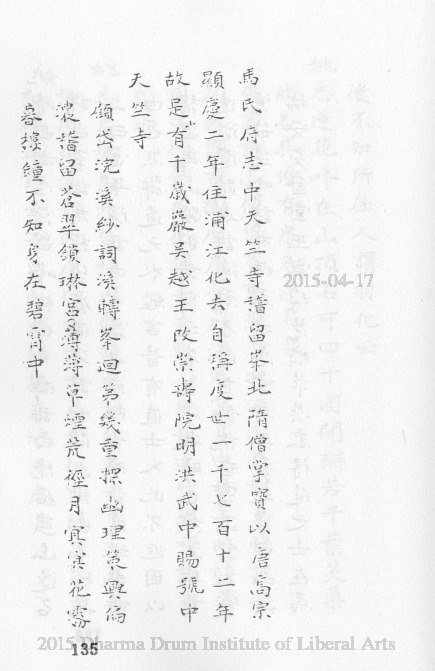 馬氏府志中天竺寺稽留峯北隋僧掌寶以唐高宗
顯慶二年住浦江化去自稱度世一千七百十二年
故是有千歲巖吳越王改崇壽院明洪武中賜號中
天竺寺
顧岱浣溪紗詞溪轉峯迴第幾重探幽理策興偏
濃稽留蒼翠鎖琳宮薄薄草煙荒徑月冥冥花
樓鐘不知身在碧霄中
135
2015-04-17
2015 Dharma Drum Institute of Liberal Arts